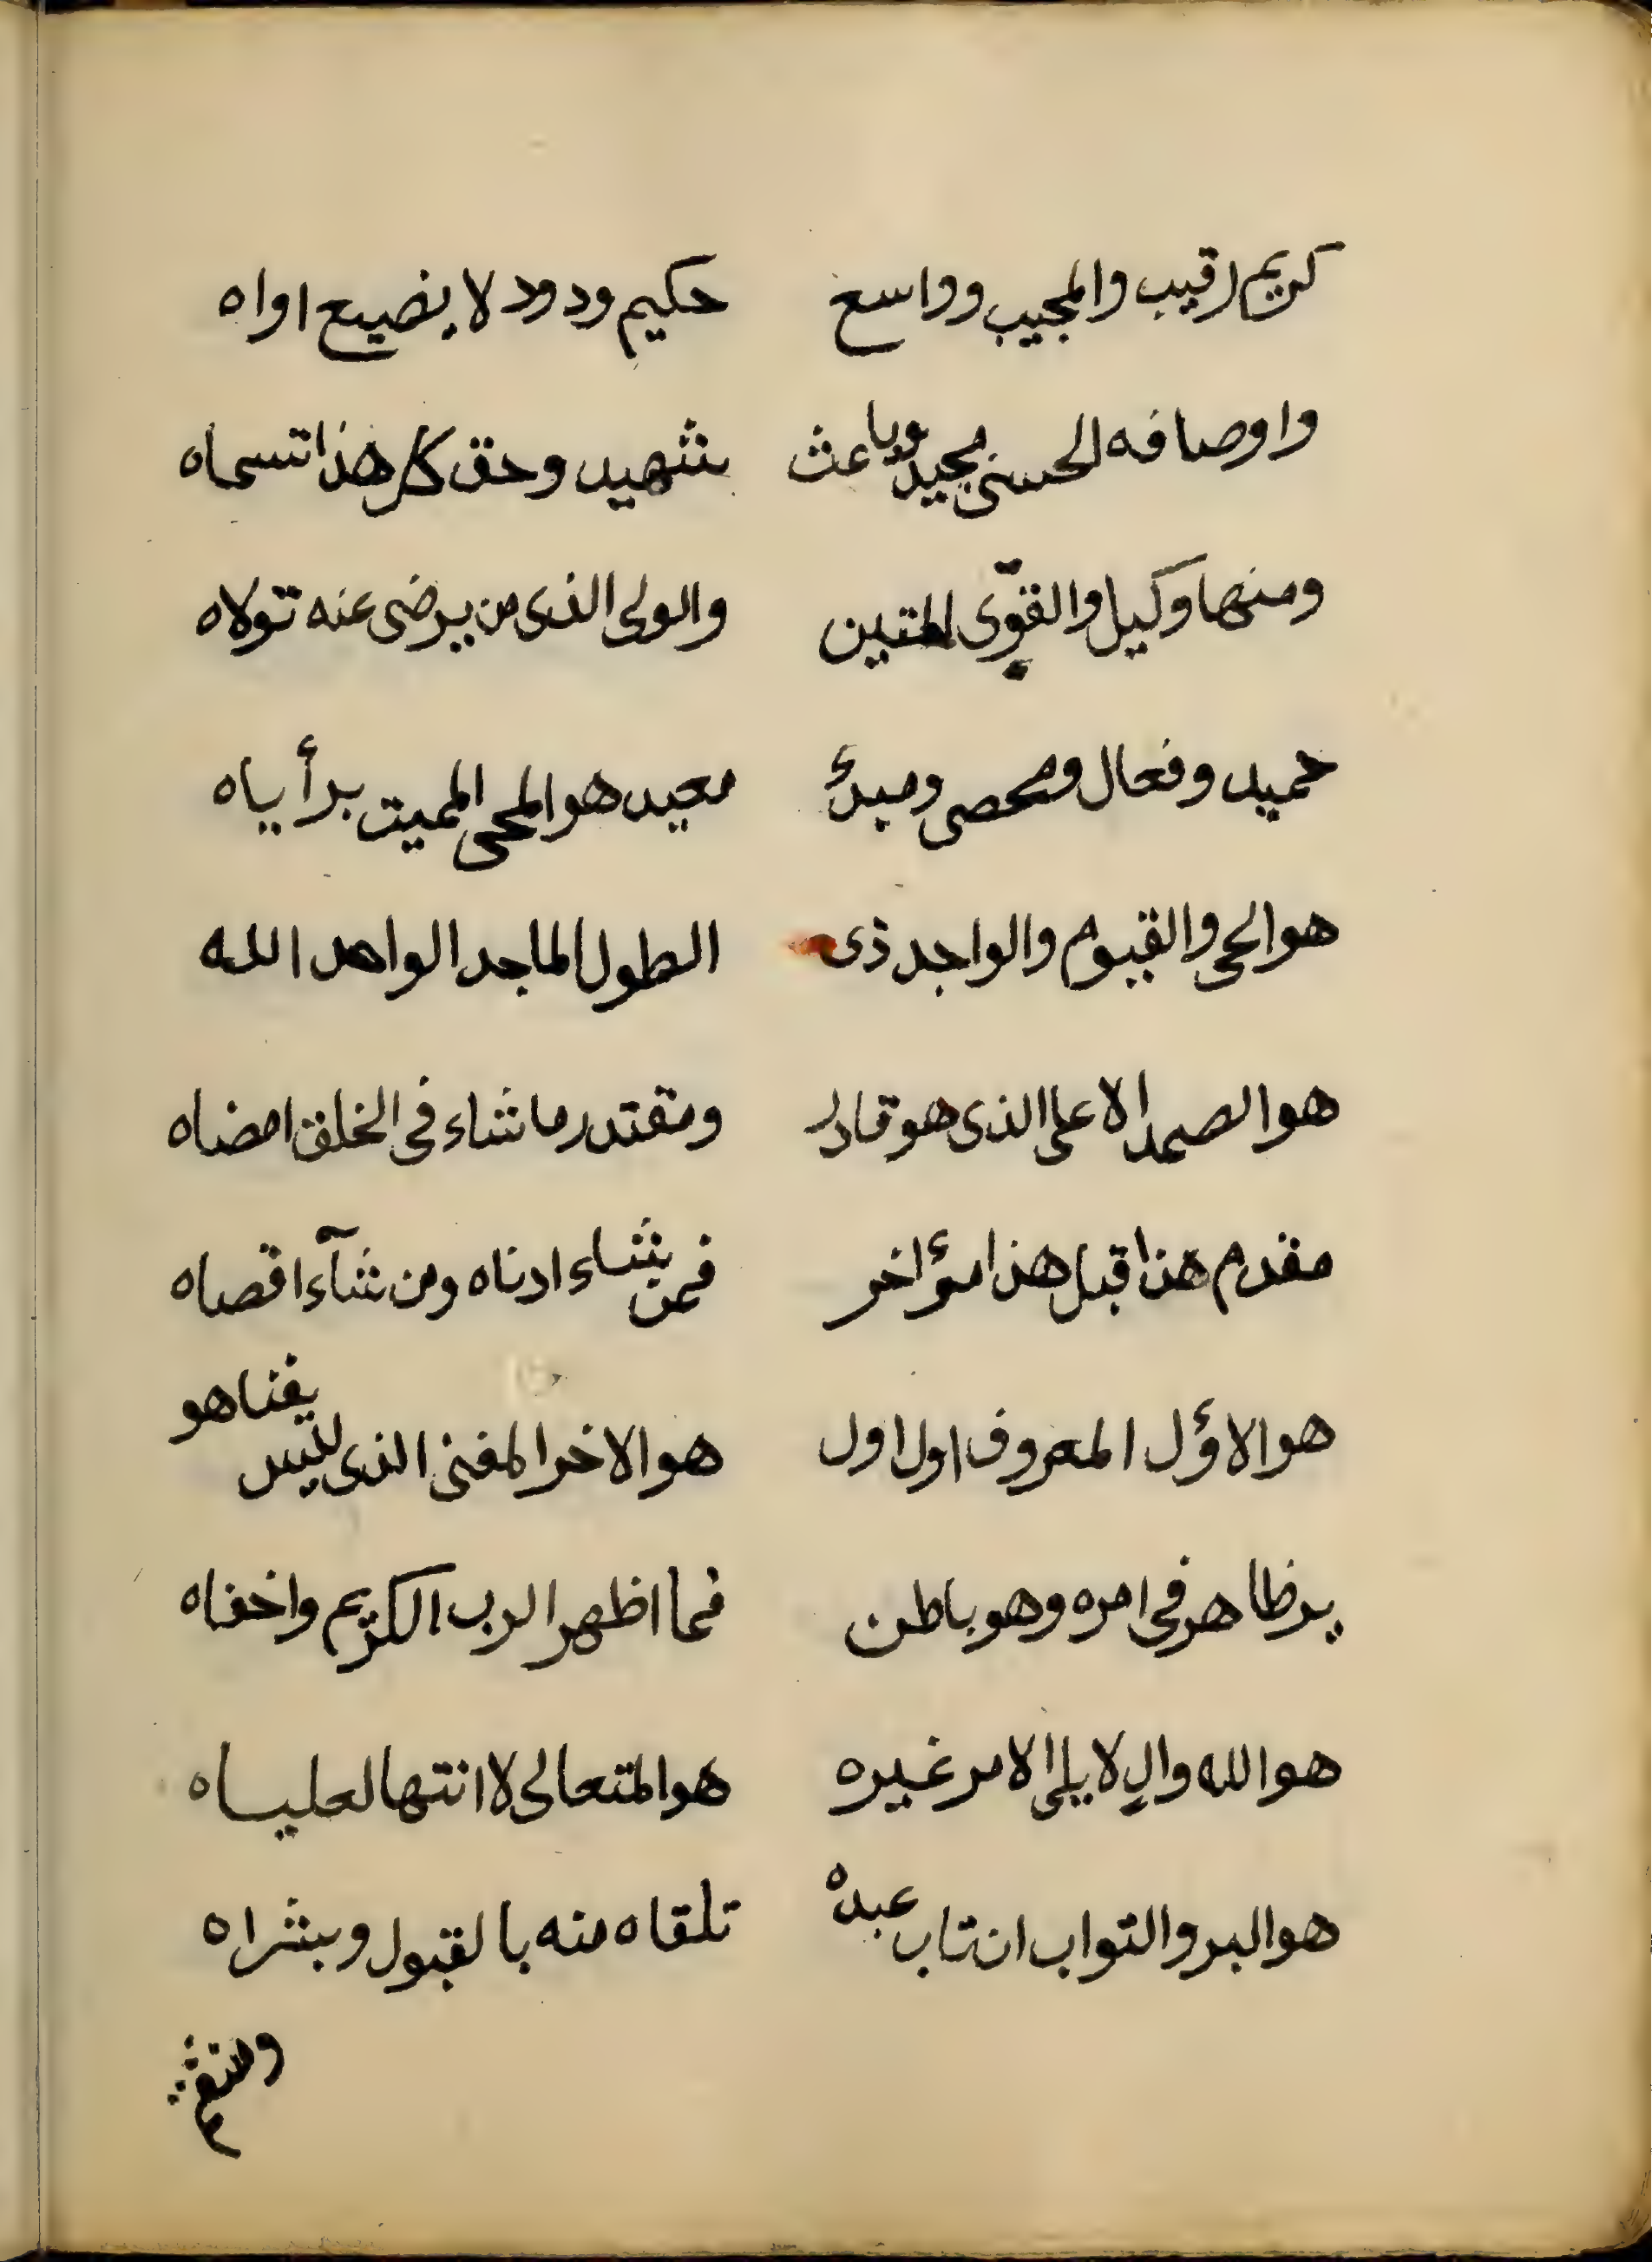 كريم رقيب والمجيب وواسع حكيم ودود لا يضيع اواه
واوصافه الحسنى مجيد وباعث شهيد وحق كل هذا تسماه
ومنها وكيل والقوّى المتين والولى الذى من يرضى عنه تولاه
حميد وفعال ومحصى ومبدئ معيد هو المحى المميت برأياه
هو الحى والقيوم والواجد ذى الطول الماجد الواحد الله
هو الصمد الاعلى الذى هو قادر ومقتدر ما شاء فى الخلق امضاه
مقدم هذا قبل هذا مؤاخر فمن شاء ادناه ومن شآء اقصاه
هو الاؤل المعروف اول اول هو الاخر المفنى الذى ليس يفناهو
يرظاهر فى امره وهو باطن فما اظهر الرب الكريم واخفاه
هو الله والٍ لا يلى الامر غيره هو المتعالى لا انتها لعلياه
هو البر والتواب ان تاب عبده تلقاه منه بالقبول وبشراه
ومنتقم